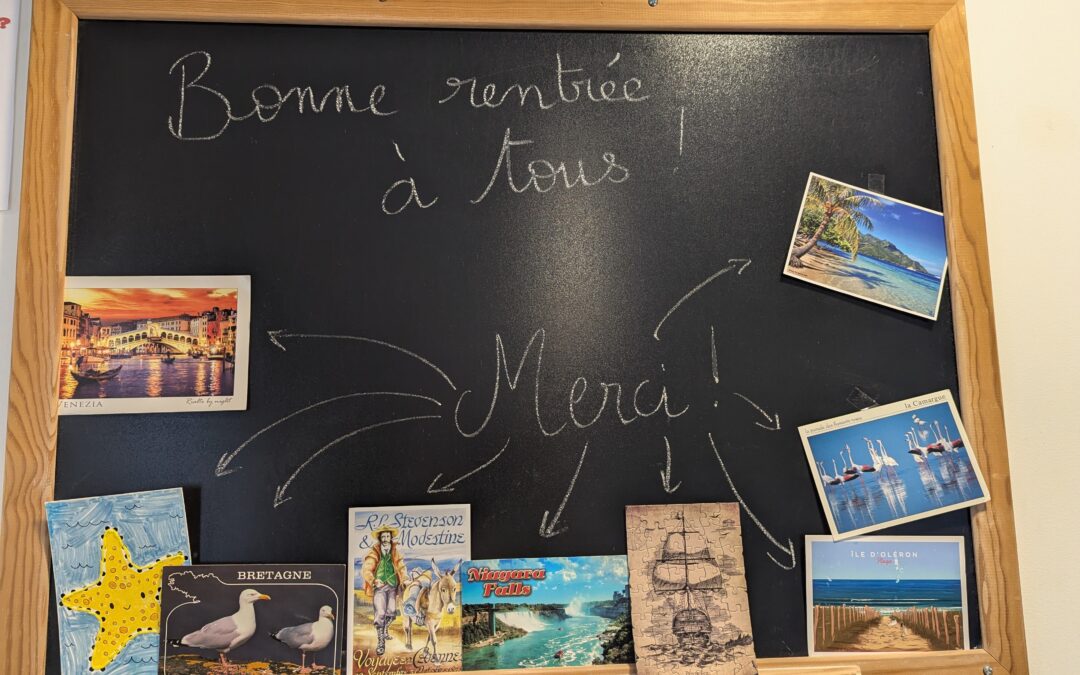 ?
Bonne rentrée
à tous !
Merci !
VENEZIA
Rialto by night
la Camargue
ÎLE D'OLÉRON
Plage
BRETAGNE
R.L. STEVENSON
& MODESTINE
VOYAGE EN CÉVENNES
Niagara
Falls